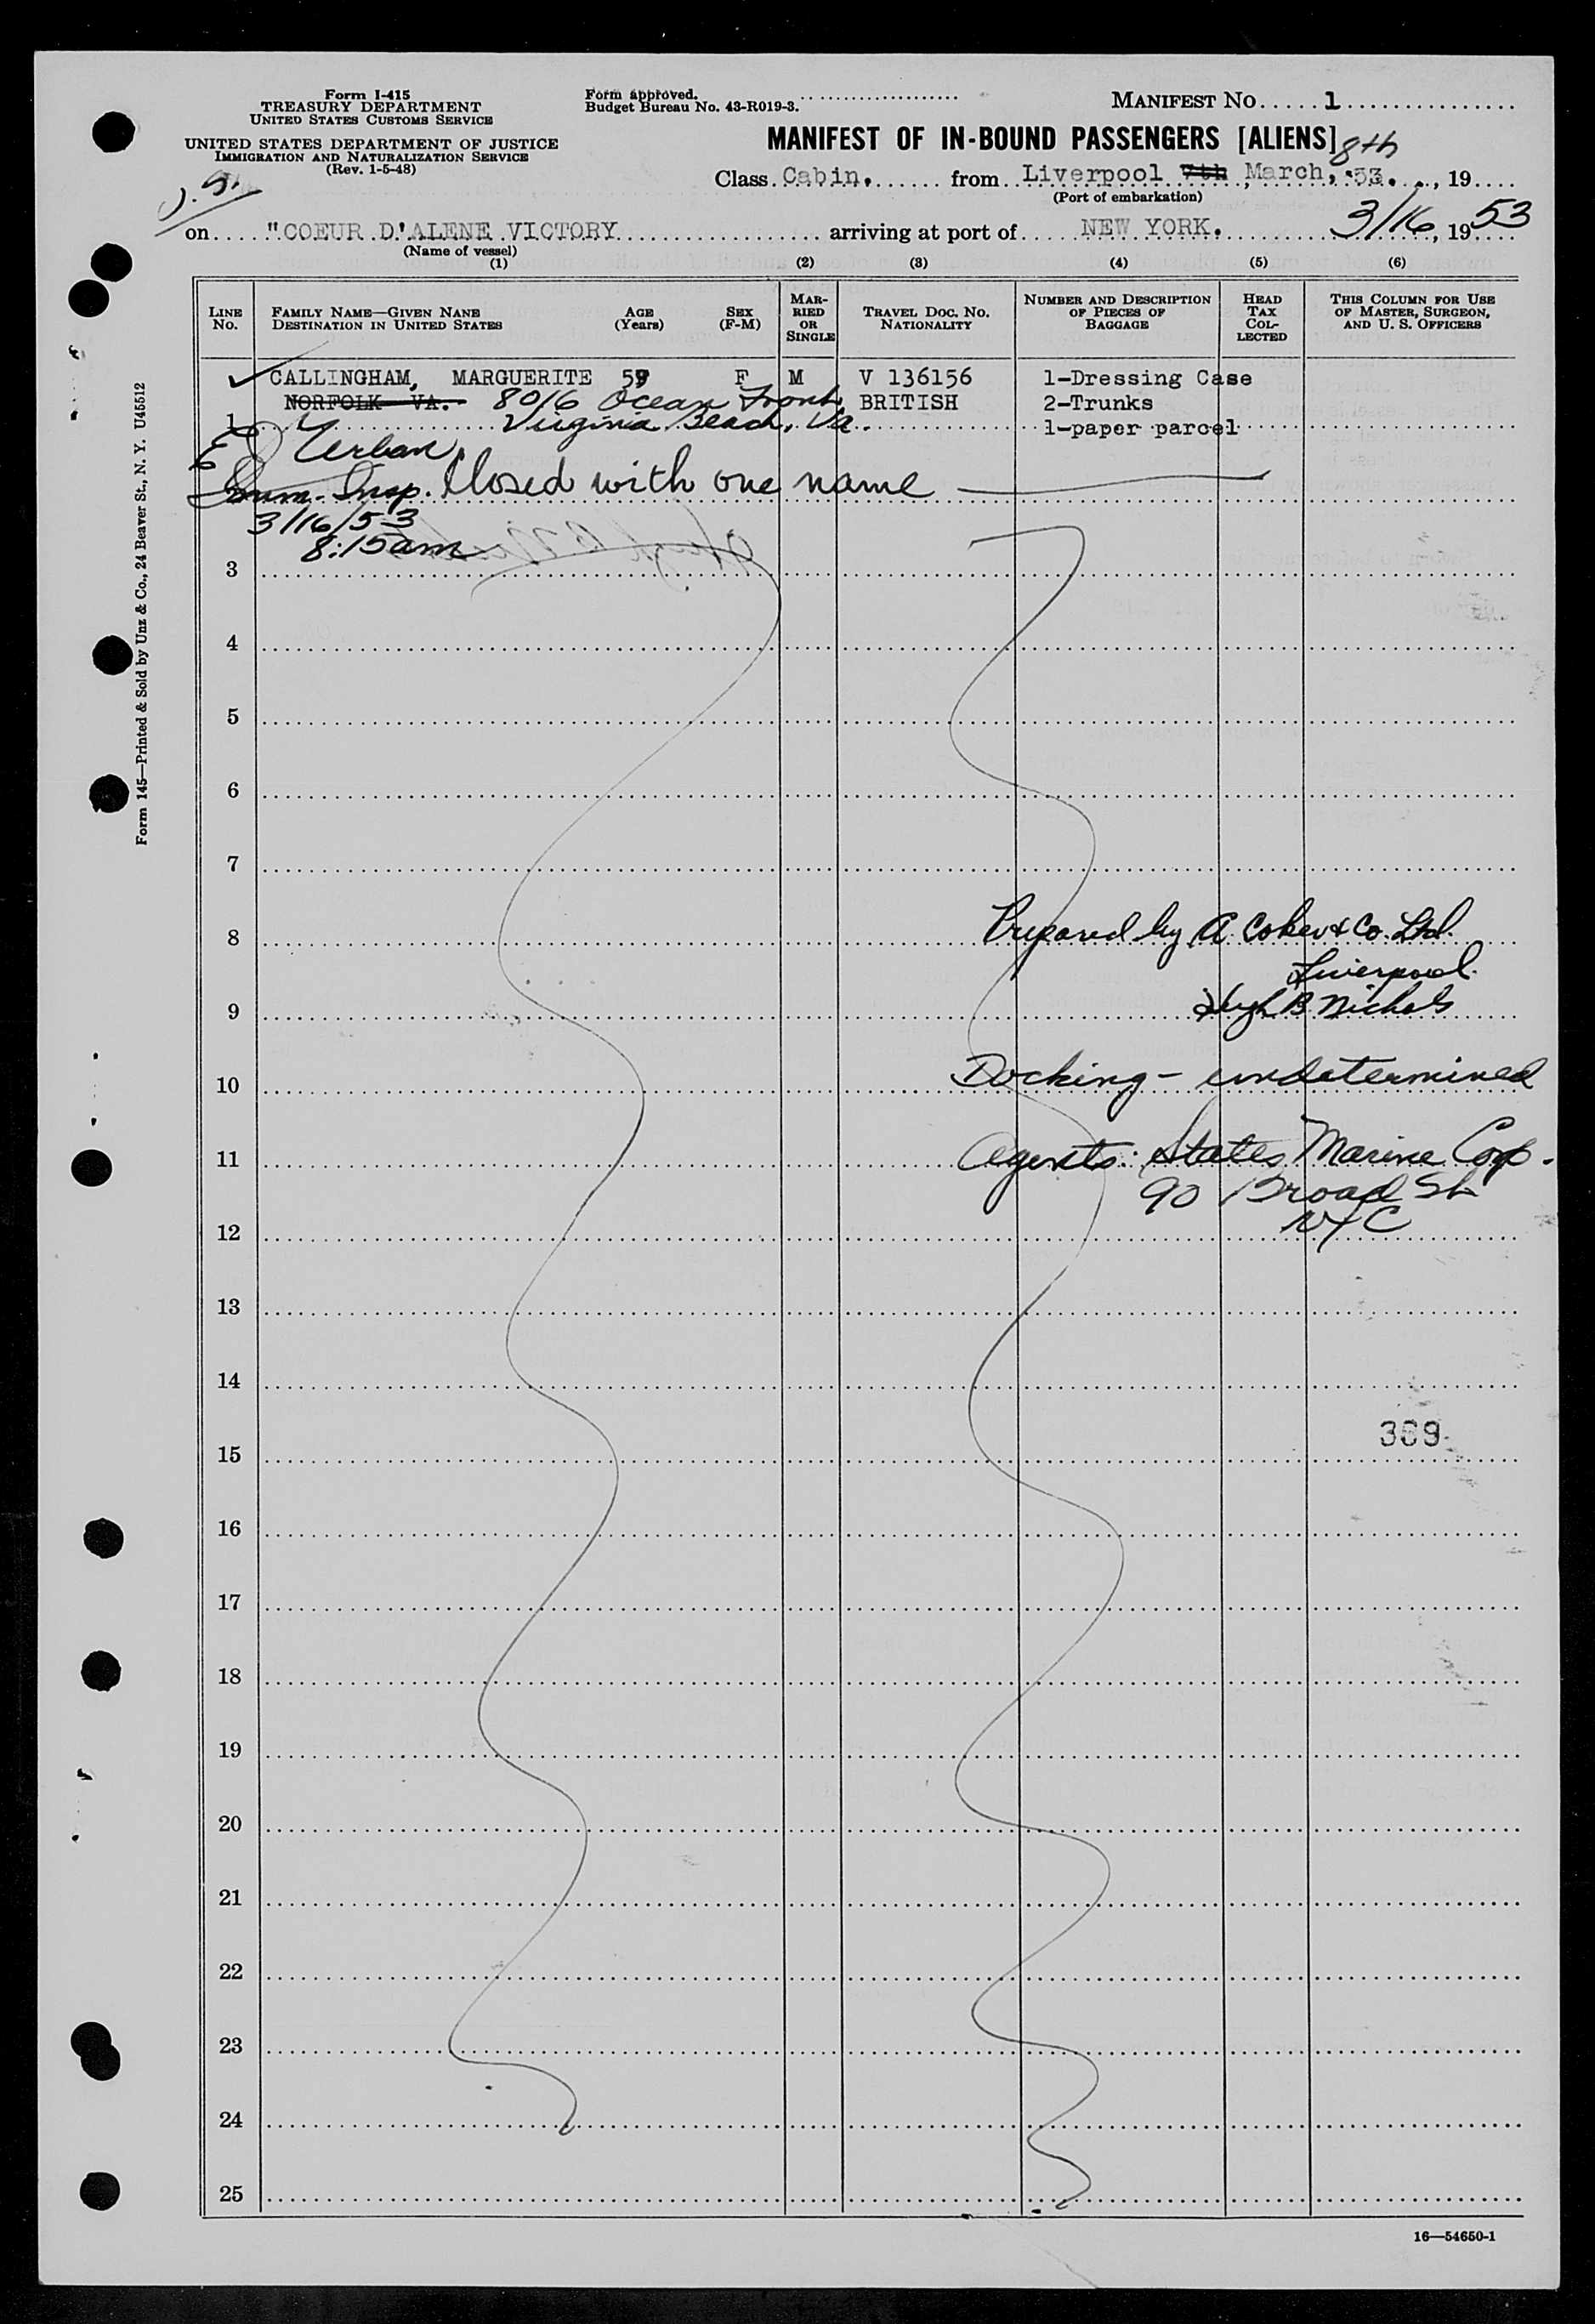 Form I-415
TREASURY DEPARTMENT
UNITED STATES CUSTOMS SERVICE
UNITED STATES DEPARTMENT OF JUSTICE
IMMIGRATION AND NATURALIZATION SERVICE
(Rev. 1-5-48)
Form approved.
Budget Bureau No. 43-R019-3.
MANIFEST NO. 1
MANIFEST OF IN-BOUND PASSENGERS [ALIENS]
8th
Class Cabin. from Liverpool 7th March, 53. , 19
(Port of embarkation)
on "COEUR D'ALENE VICTORY arriving at port of NEW YORK. 3/16, 1953
(Name of vessel)
(1) (2) (3) (4) (5) (6)
LINE NO. FAMILY NAME—GIVEN NANE DESTINATION IN UNITED STATES AGE (Years) SEX (F-M) MARRIED OR SINGLE TRAVEL DOC. NO. NATIONALITY NUMBER AND DESCRIPTION OF PIECES OF BAGGAGE HEAD TAX COLLECTED THIS COLUMN FOR USE OF MASTER, SURGEON, AND U. S. OFFICERS
CALLINGHAM, MARGUERITE 59 F M V 136156 1-Dressing Case
NORFOLK VA. 8016 Ocean Front BRITISH 2-Trunks
1 Virginia Beach, Va. 1-paper parcel
Urban
Imm. Insp. Closed with one name
3/16/53
8:15am
3
4
5
6
7
8 Prepared by A Coker & Co. Ltd.
Liverpool.
9 Hugh B Nichols
10 Docking - undetermined
11 Agents: States Marine Corp.
90 Broad St
12 NYC
13
14
369
15
16
17
18
19
20
21
22
23
24
25
16—54650-1
Form 145—Printed & Sold by Unz & Co., 24 Beaver St., N. Y. U45512